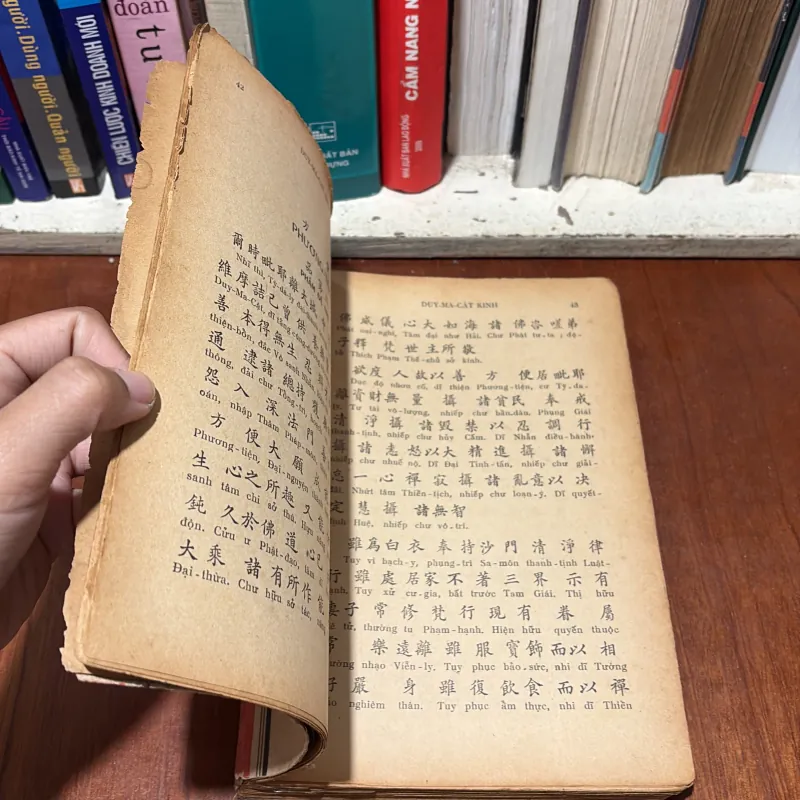 đoán
tu
người. Dùng người. Quản người
CHIẾN LƯỢC KINH DOANH MỚI
XUẤT BẢN
CẨM NANG
NHÀ XUẤT BẢN LAO ĐỘNG
42
DUY-MA-CẬT
方
PHƯƠNG
爾時毗耶離大
Nhĩ thì, Tỳ-da-ly đại
維摩詰已曾供
Duy-Ma-Cật, dĩ tằng
善本得無生忍
thiện-bổn, đắc Vô sanh Nhẫn
通逮諸總持
thông, đãi chư Tổng-trì
怨入深法門
oán, nhập Thâm Pháp-môn
方便大願成
Phương-tiện, Đại-nguyện
生心之所趣又
sanh tâm chi sở thú. Hựu
鈍久於佛道心已
độn. Cửu ư Phật-đạo, tâm
大乘諸有所作
Đại-thừa. Chư hữu sở tác,
DUY-MA-CẬT KINH 43
佛威儀心大如海諸佛咨嗟弟
oai-nghi, Tâm đại như Hải. Chư Phật tư, ta; đệ-
子釋梵世主所敬
tử Thích Phạm Thế-chủ sở kính.
欲度人故以善方便居毗耶
Dục độ nhơn cố, dĩ thiện Phương-tiện, cư Tỳ-da-
離資財無量攝諸貧民奉戒
Tư tài vô-lượng, nhiếp chư bần-dân, Phụng Giái
清淨攝諸毀禁以忍調行
thanh-tịnh, nhiếp chư hủy Cấm. Dĩ Nhẫn điều-hành
攝諸恚怒以大精進攝諸懈
nhiếp chư nhuế nộ, Dĩ Đại Tinh-tấn, nhiếp chư giải-
怠一心禪寂攝諸亂意以決
đãi. Nhứt tâm Thiền-tịch, nhiếp chư loạn-ý. Dĩ quyết-
定慧攝諸無智
định Huệ, nhiếp chư vô-trí.
雖為白衣奉持沙門清淨律
Tuy vi bạch-y, phụng-trì Sa-môn thanh-tịnh Luật-
行雖處居家不著三界示有
hạnh. Tuy xử cư-gia, bất trước Tam Giái. Thị hữu
妻子常修梵行現有眷屬
thê tử, thường tu Phạm-hạnh. Hiện hữu quyến thuộc
常樂遠離雖服寶飾而以相
thường nhạo Viễn-ly. Tuy phục bảo-sức, nhi dĩ Tướng
嚴身雖復飲食而以禪
nghiêm thân. Tuy phục ẩm thực, nhi dĩ Thiền